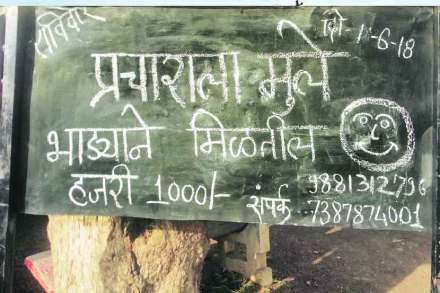 रविवार दि-1-6-18
प्रचाराला मुले
भाड्याने मिळतील
हजरी 1000/- संपर्क 9881312796
7387874001